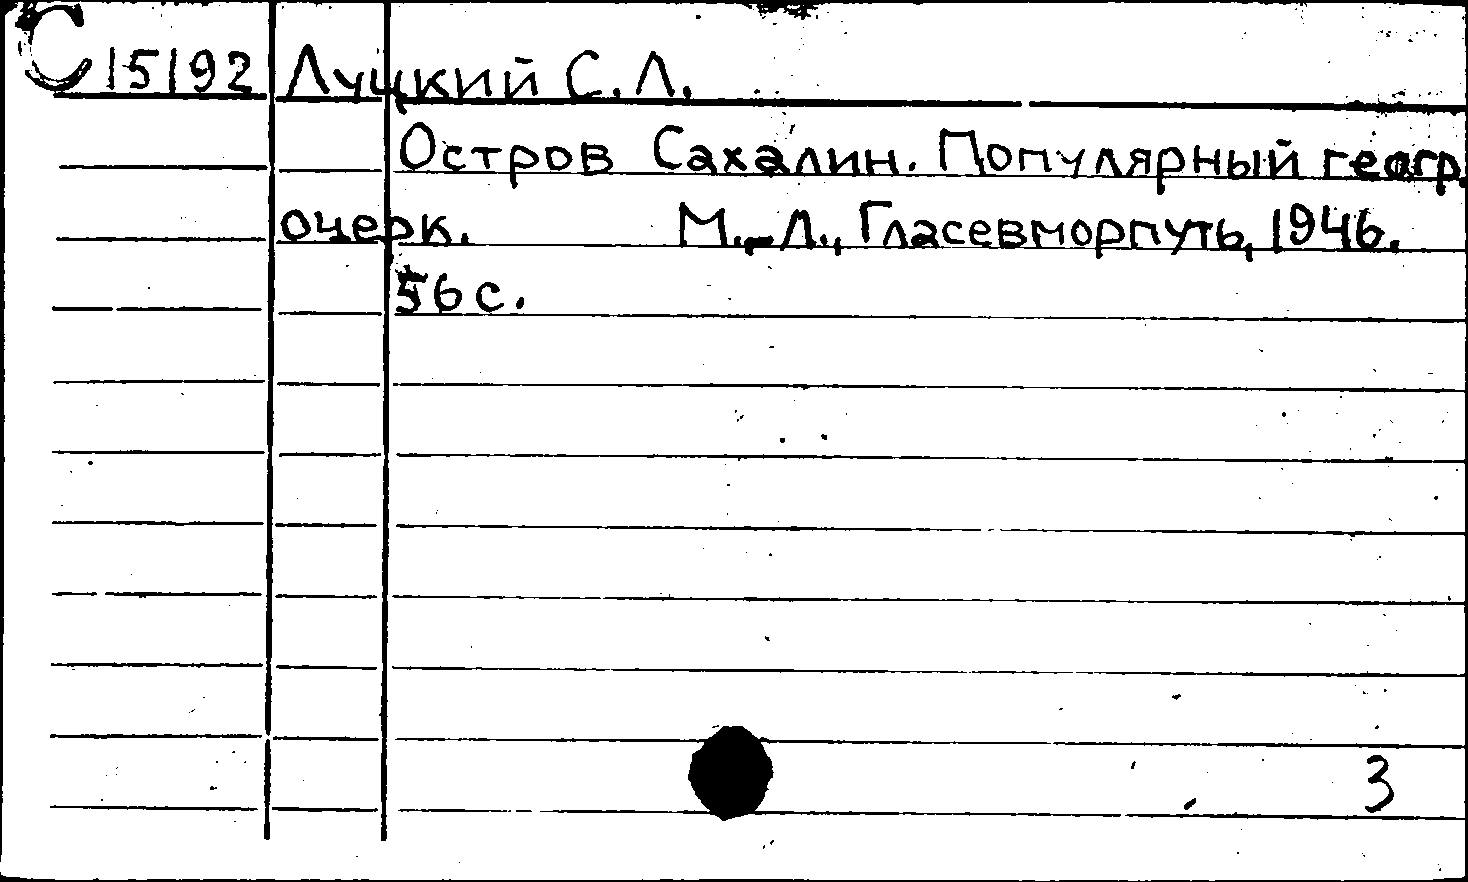 С 15192 Луцкий С.Л.
Остров Сахалин. Популярный геогр.
очерк. М.-Л., Гласевморпуть, 1946.
56 с.
3